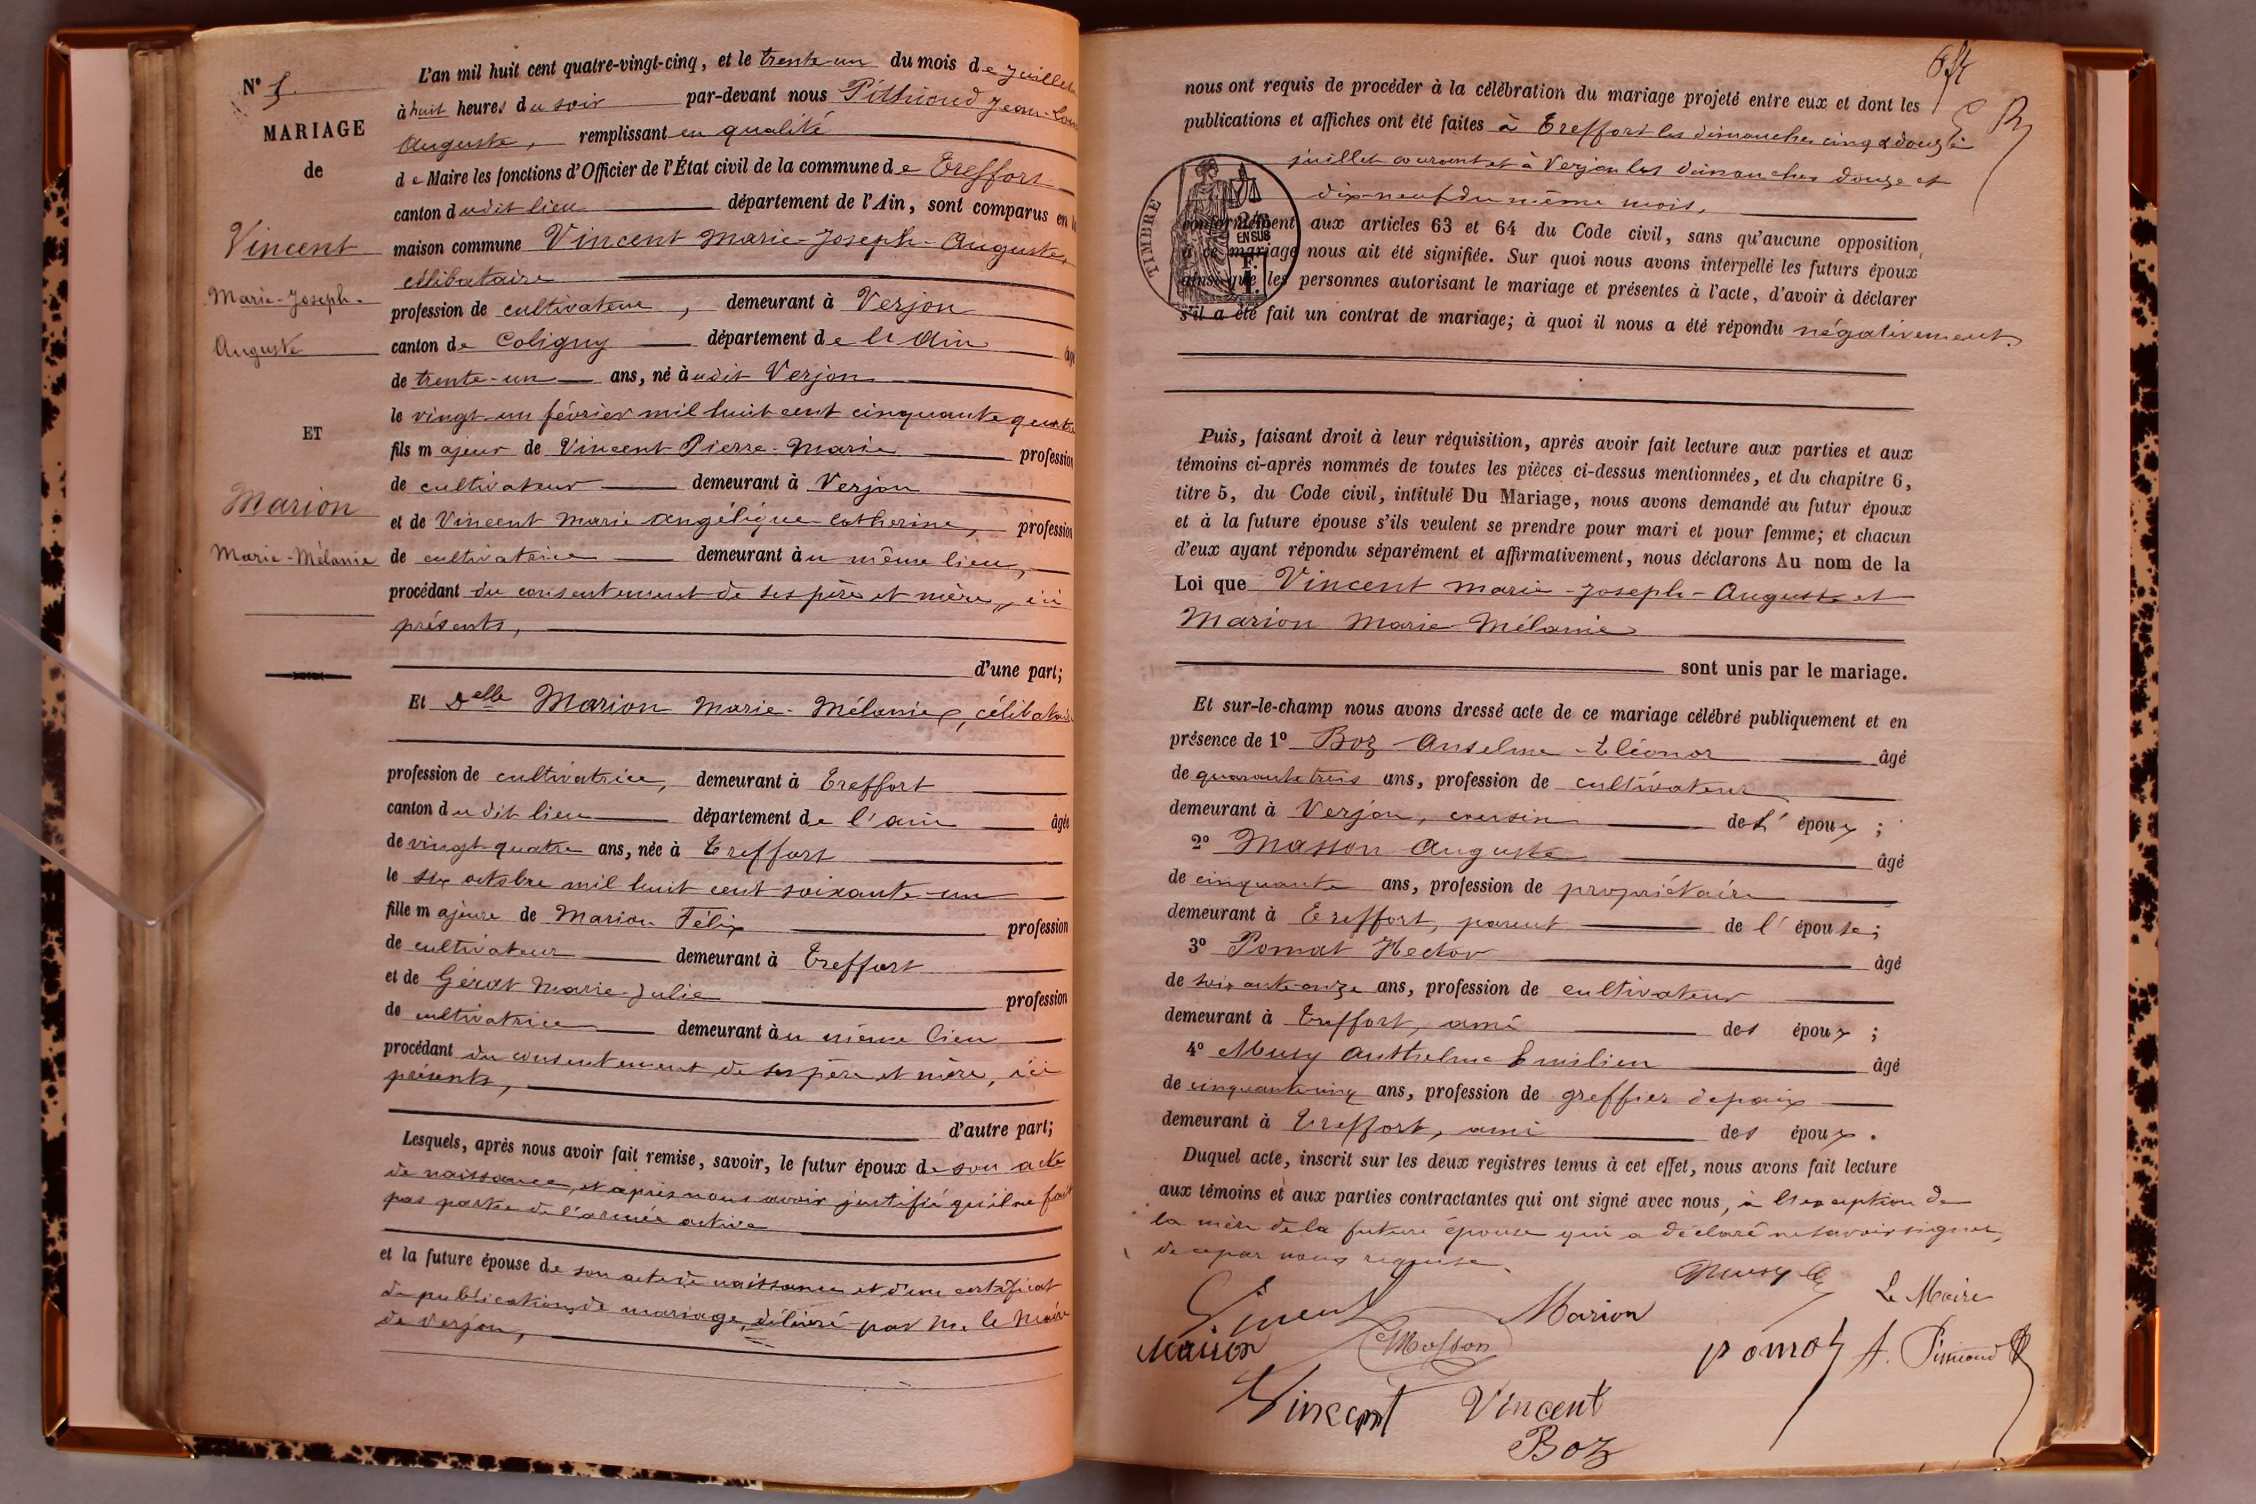 N° 5.
MARIAGE
de
Vincent
Marie-Joseph-
Auguste
ET
Marion
Marie-Mélanie
L'an mil huit cent quatre-vingt-cinq, et le trente-un du mois de Juillet
à huit heures du soir par-devant nous Jean-Louis
Auguste, remplissant en qualité
de Maire les fonctions d'Officier de l'État civil de la commune de Treffort
canton dudit lieu département de l'Ain, sont comparus en la
maison commune Vincent Marie-Joseph-Auguste,
célibataire
profession de cultivateur, demeurant à Verjon
canton de Coligny département de l'Ain âgé
de trente-un ans, né audit Verjon
le vingt-un février mil huit cent cinquante quatre
fils majeur de Vincent Pierre-Marie profession
de cultivateur demeurant à Verjon
et de Vincent Marie Angélique-Catherine, profession
de cultivatrice demeurant au même lieu,
procédant du consentement de ses père et mère, ici
présents,
d'une part;
Et Delle Marion Marie-Mélanie, célibataire
profession de cultivatrice, demeurant à Treffort
canton dudit lieu département de l'ain âgée
de vingt-quatre ans, née à Treffort
le six octobre mil huit cent soixante-un
fille majeure de Marion Félix profession
de cultivateur demeurant à Treffort
et de Gérat Marie-Julie profession
de cultivatrice demeurant au même lieu
procédant du consentement de ses père et mère, ici
présents,
d'autre part;
Lesquels, après nous avoir fait remise, savoir, le futur époux de son acte
de naissance, et après nous avoir justifié qu'il ne fait
pas partie de l'armée active
et la future épouse de son acte de naissance et d'un certificat
de publications de mariage, délivré par M. le Maire
de Verjon,
nous ont requis de procéder à la célébration du mariage projeté entre eux et dont les
publications et affiches ont été faites à Treffort les dimanches cinq & douze
juillet courant et à Verjon les dimanches douze et
dix-neuf du même mois,
TIMBRE
2/10
EN SUS
F.
1.
conformément aux articles 63 et 64 du Code civil, sans qu'aucune opposition
à ce mariage nous ait été signifiée. Sur quoi nous avons interpellé les futurs époux
ainsi que les personnes autorisant le mariage et présentes à l'acte, d'avoir à déclarer
s'il a été fait un contrat de mariage; à quoi il nous a été répondu négativement.
Puis, faisant droit à leur réquisition, après avoir fait lecture aux parties et aux
témoins ci-après nommés de toutes les pièces ci-dessus mentionnées, et du chapitre 6,
titre 5, du Code civil, intitulé Du Mariage, nous avons demandé au futur époux
et à la future épouse s'ils veulent se prendre pour mari et pour femme; et chacun
d'eux ayant répondu séparément et affirmativement, nous déclarons Au nom de la
Loi que Vincent Marie-Joseph-Auguste et
Marion Marie Mélanie
sont unis par le mariage.
Et sur-le-champ nous avons dressé acte de ce mariage célébré publiquement et en
présence de 1° Boz Anselme-Eléonor âgé
de quarante trois ans, profession de cultivateur
demeurant à Verjon, cousin de l' époux ;
2° Masson Auguste âgé
de cinquante ans, profession de propriétaire
demeurant à Treffort, parent de l' épouse;
3° Pomat Hector âgé
de soixante-onze ans, profession de cultivateur
demeurant à Treffort, ami des époux ;
4° Musy Anthelme Emilien âgé
de cinquante-cinq ans, profession de greffier de paix
demeurant à Treffort, ami des époux.
Duquel acte, inscrit sur les deux registres tenus à cet effet, nous avons fait lecture
aux témoins et aux parties contractantes qui ont signé avec nous, à l'exception de
la mère de la future épouse qui a déclaré ne savoir signer,
de ce par nous requise.
Musy
Le Maire
Vincent
Marion
Marion
Masson
Pomat
Vincent
Vincent
Boz